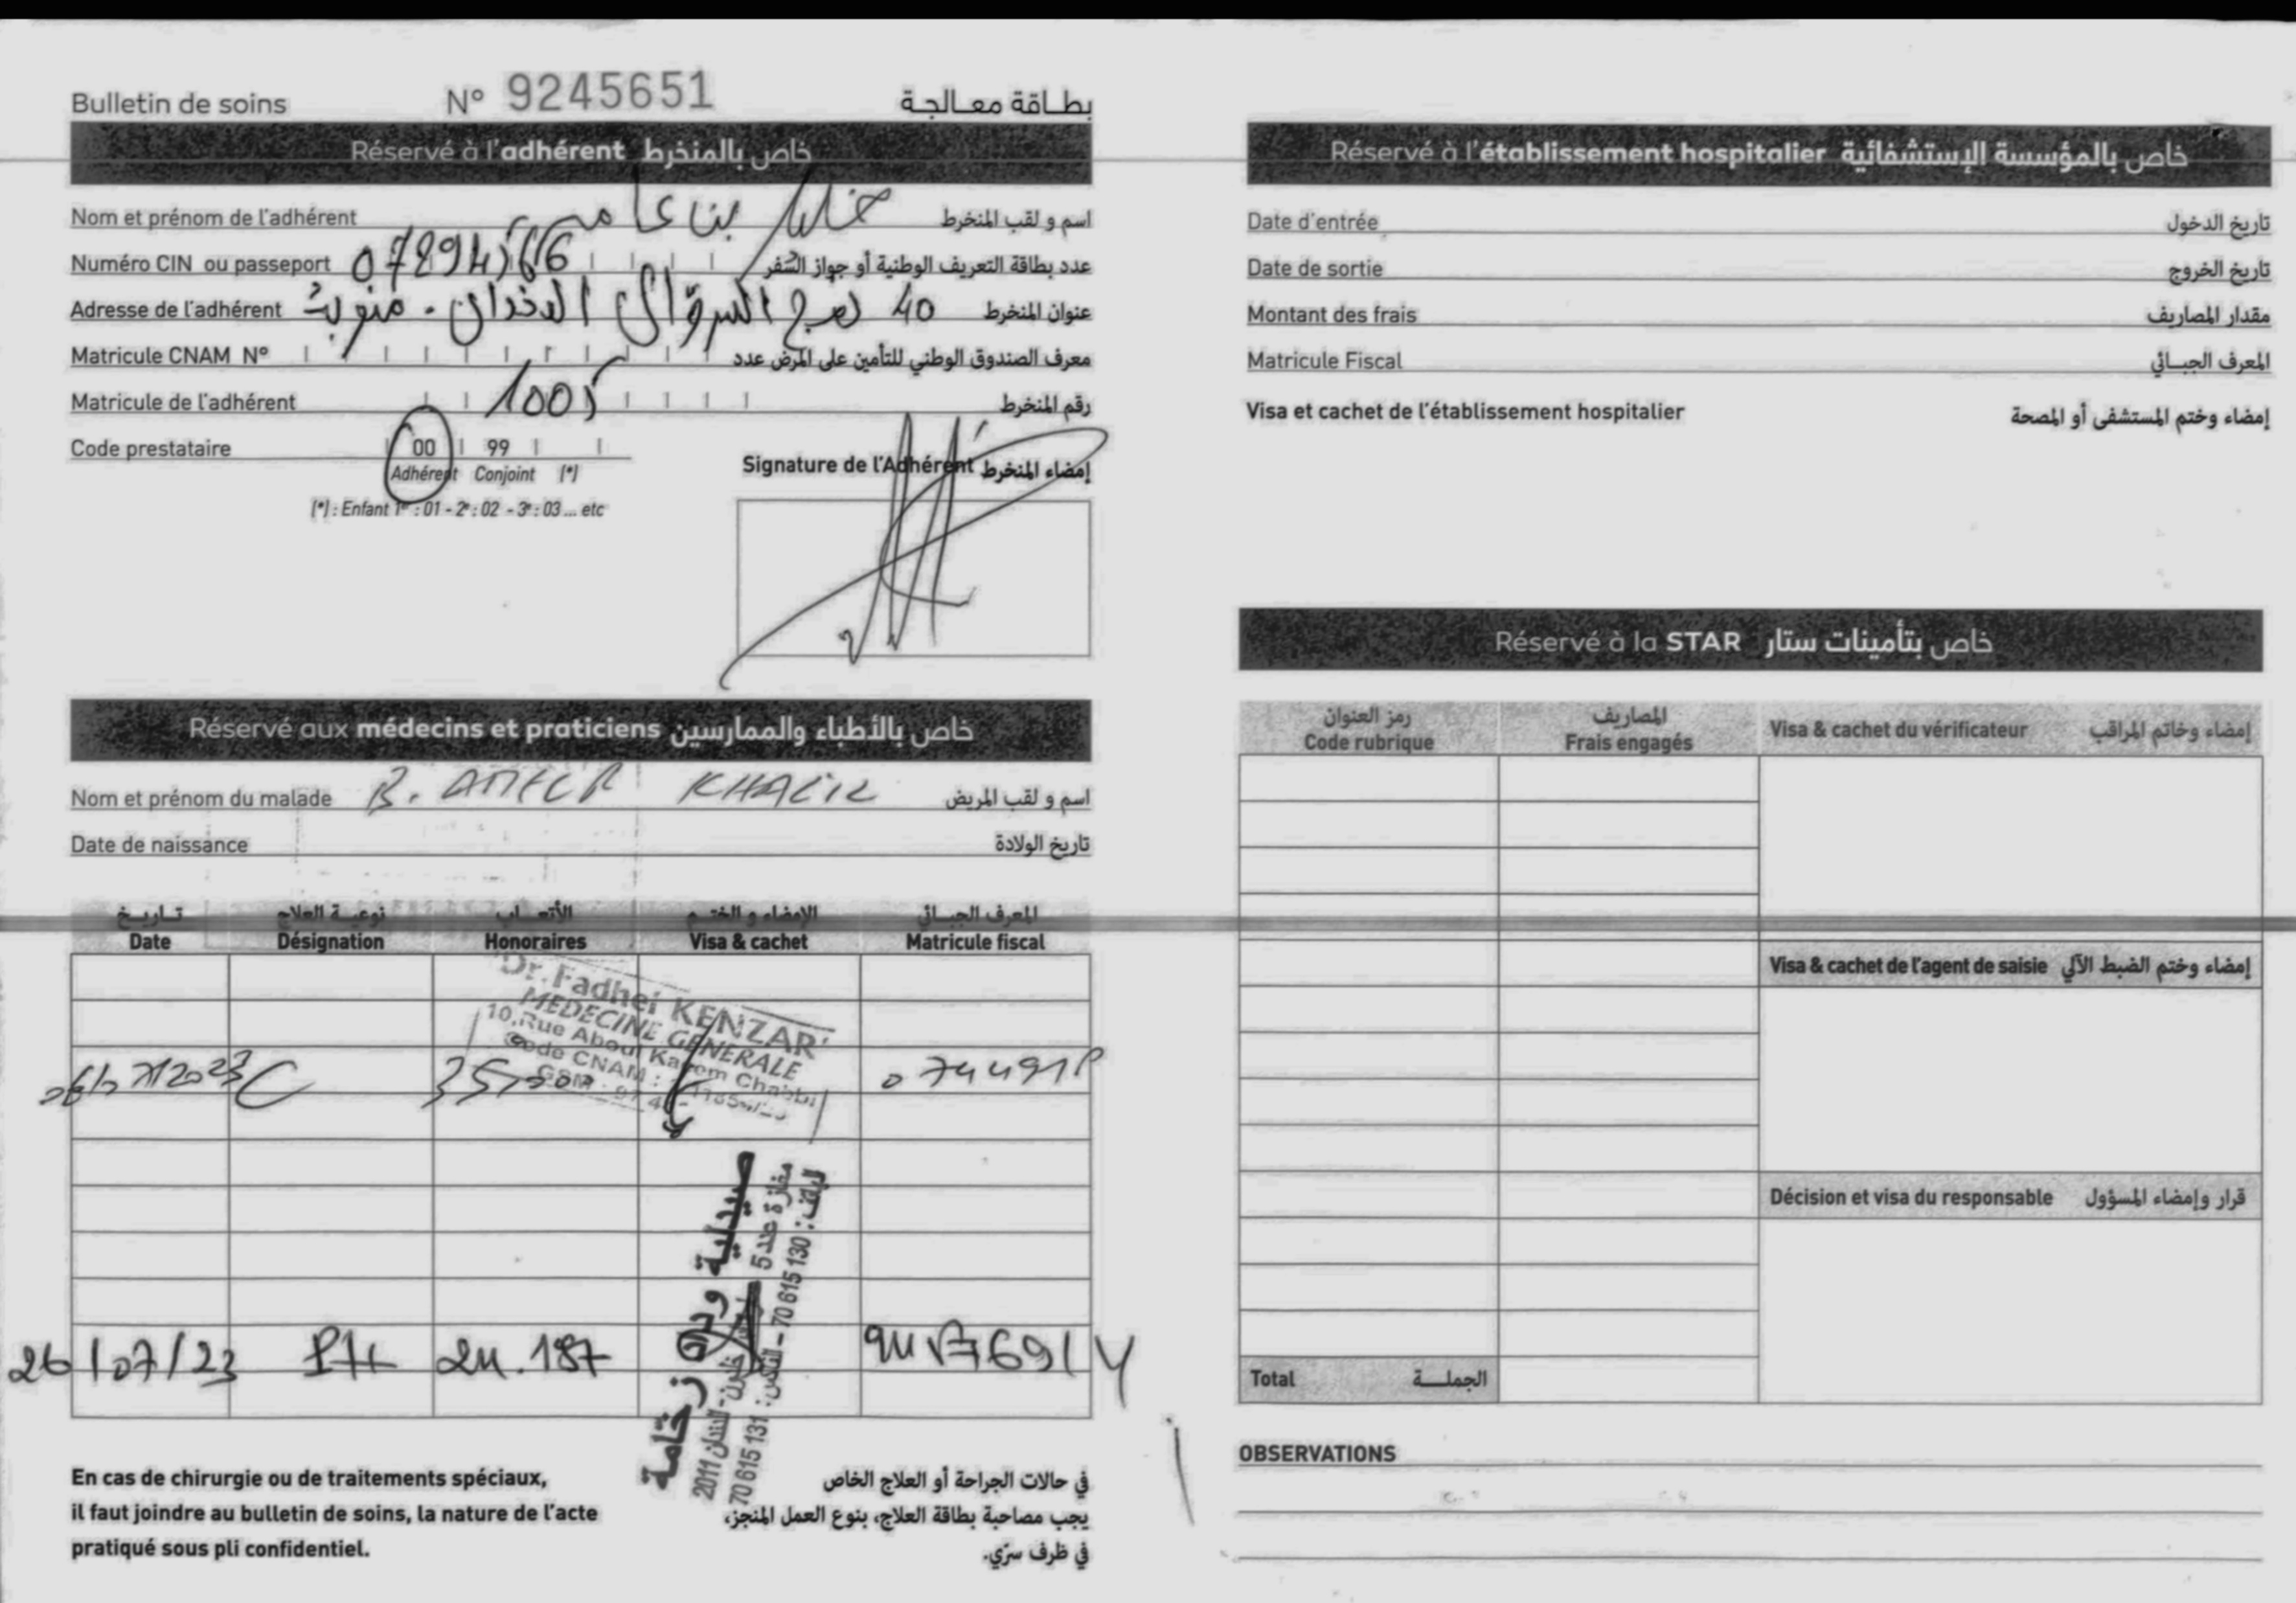 Bulletin de soins N° 9245651 بطاقة معالجة
Réservé à l'adhérent خاص بالمنخرط
Nom et prénom de l'adhérent خليل بن عامر اسم و لقب المنخرط
Numéro CIN ou passeport عدد بطاقة التعريف الوطنية أو جواز السفر
Adresse de l'adhérent 40 نهج السؤال منوبة عنوان المنخرط
Matricule CNAM N° معرف الصندوق الوطني للتأمين على المرض عدد
Matricule de l'adhérent 1005 رقم المنخرط
Code prestataire 00 99
Adhérent Conjoint (*)
(*) : Enfant 1er : 01 - 2e : 02 - 3e : 03 ... etc
Signature de l'Adhérent إمضاء المنخرط
Réservé aux médecins et praticiens خاص بالأطباء والممارسين
Nom et prénom du malade B. AMEUR KHALIL اسم و لقب المريض
Date de naissance تاريخ الولادة
تاريخ نوعية العلاج الأتعاب الإمضاء و الختم المعرف الجبائي
Date Désignation Honoraires Visa & cachet Matricule fiscal
Dr. Fadhel KENZARI
MEDECINE GENERALE
10, Rue Aboul Kacem Chabbi
Code CNAM :
GSM :
26/07/2023 C 35,000
صيدلية زخامة
مغازة عدد 5
2011
الهاتف : 70 615 130 – الفاكس : 70 615 131
26/07/23 PH 24.187
En cas de chirurgie ou de traitements spéciaux,
il faut joindre au bulletin de soins, la nature de l'acte
pratiqué sous pli confidentiel.
في حالات الجراحة أو العلاج الخاص
يجب مصاحبة بطاقة العلاج، بنوع العمل المنجز،
في ظرف سرّي.
Réservé à l'établissement hospitalier خاص بالمؤسسة الإستشفائية
Date d'entrée تاريخ الدخول
Date de sortie تاريخ الخروج
Montant des frais مقدار المصاريف
Matricule Fiscal المعرف الجبائي
Visa et cachet de l'établissement hospitalier إمضاء وختم المستشفى أو المصحة
Réservé à la STAR خاص بتأمينات ستار
رمز العنوان المصاريف
Code rubrique Frais engagés Visa & cachet du vérificateur إمضاء وخاتم المراقب
Visa & cachet de l'agent de saisie إمضاء وختم الضبط الآلي
Décision et visa du responsable قرار وإمضاء المسؤول
Total الجملة
OBSERVATIONS